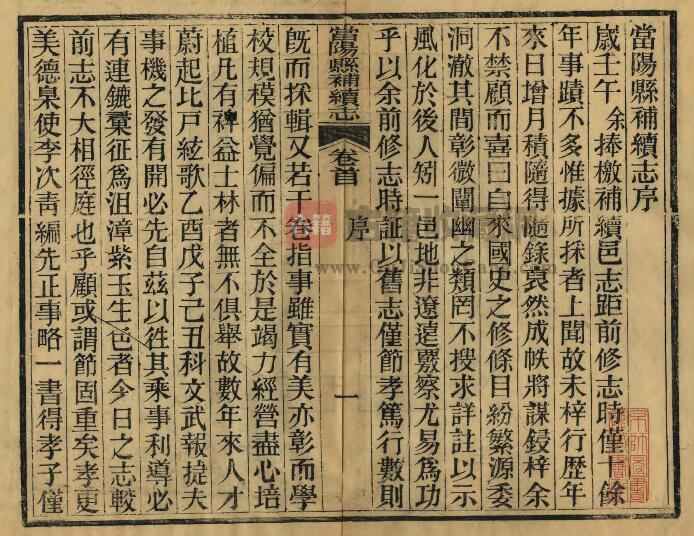 當陽縣補續志序
歲壬午余捧檄補續邑志距前修志時僅十餘
年事蹟不多惟據所採者上聞故未梓行歷年
來日增月積隨得隨錄裒然成帙將謀鋟梓余
不禁顧而喜曰自來國史之修條目紛繁源委
洞澈其間彰微闡幽之類罔不搜求詳註以示
風化於後人矧一邑地非遼遠覈察尤易為功
乎以余前修志時証以舊志僅節孝篤行數則
當陽縣補續志 卷首 序 一
旣而採輯又若干卷指事雖實有美亦彰而學
校規模猶覺偏而不全於是竭力經營盡心培
植凡有裨益士林者無不俱舉故數年來人才
蔚起比戶絃歌乙酉戊子己丑科文武報捷夫
事機之發有開必先自茲以徃其乘事利導必
有連鑣彙征為沮漳紫玉生色者今日之志較
前志不大相徑庭也乎顧或謂節固重矣孝更
美德臬使李次青編先正事略一書得孝子僅